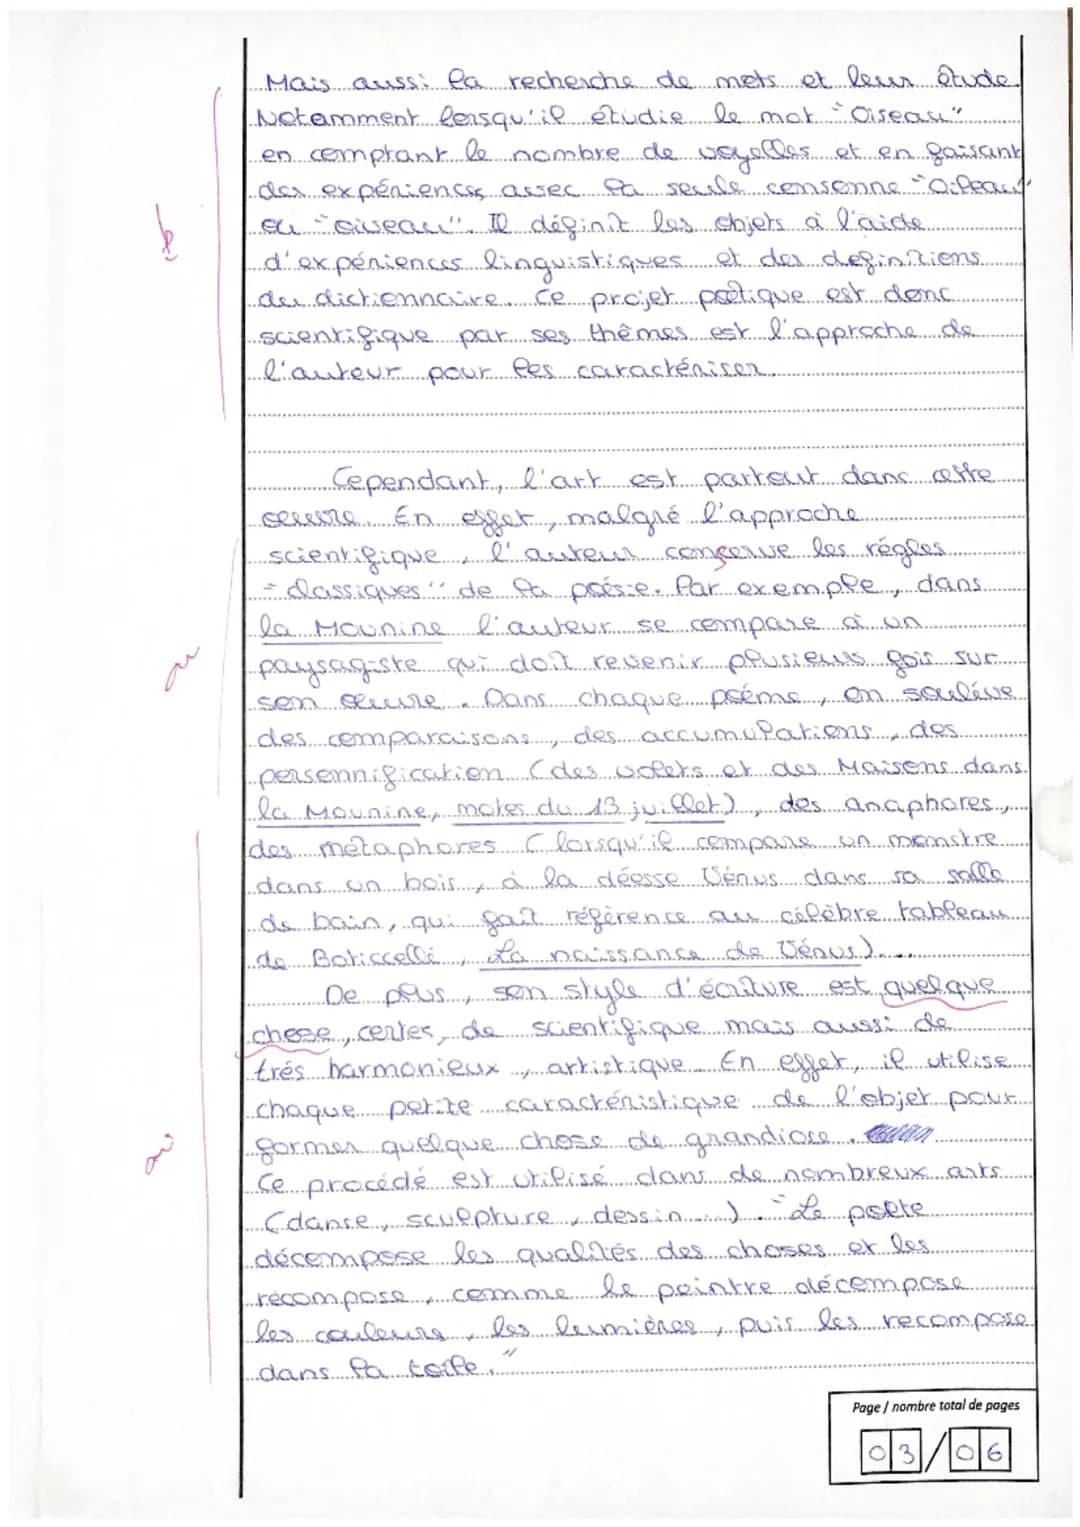 Mais aussi la recherche de mots et leur étude.
Notamment lorsqu'il étudie le mot "Oiseau"
en comptant le nombre de voyelles et en faisant
des expériences avec la seule consonne "Oileau"
ou "oiveau". Il définit les objets à l'aide
d'expériences linguistiques et des définitions
du dictionnaire. Ce projet poétique est donc
scientifique par ses thêmes est l'approche de
l'auteur pour les caractériser.
Cependant, l'art est partout dans cette
oeuvre. En effet, malgré l'approche
scientifique, l'auteur conçerve les régles
"classiques" de la poésie. Par exemple, dans
la Mounine l'auteur se compare à un
paysagiste qui doit revenir plusieurs fois sur
son oeuvre. Dans chaque poéme, on souléve
des comparaisons, des accumulations, des
personnification (des volets et des Maisons dans
la Mounine, notes du 13 juillet), des anaphores,
des métaphores (lorsqu'il compare un monstre
dans un bois, à la déesse Vénus dans sa salle
de bain, qui fait référence au célèbre tableau
de Boticcelli, La naissance de Vénus)...
De plus, son style d'écriture est quelque
chose, certes, de scientifique mais aussi de
trés harmonieux, artistique. En effet, il utilise
chaque petite caractéristique de l'objet pour
former quelque chose de grandiose.
Ce procédé est utilisé dans de nombreux arts
(danse, sculpture, dessin...). "Le poète
décompose les qualités des choses et les
recompose, comme le peintre décompose
les couleurs, les lumières, puis les recompose
dans la toile."
Page / nombre total de pages
03/06